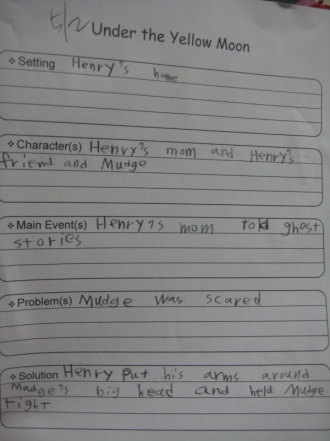 5/2 Under the Yellow Moon
❖ Setting Henry's home
❖ Character(s) Henry's mom and Henry's
friend and Mudge
❖ Main Event(s) Henry's mom told ghost
stories
❖ Problem(s) Mudge was scared
❖ Solution Henry put his arms around
Mudge's big head and held Mudge
tight